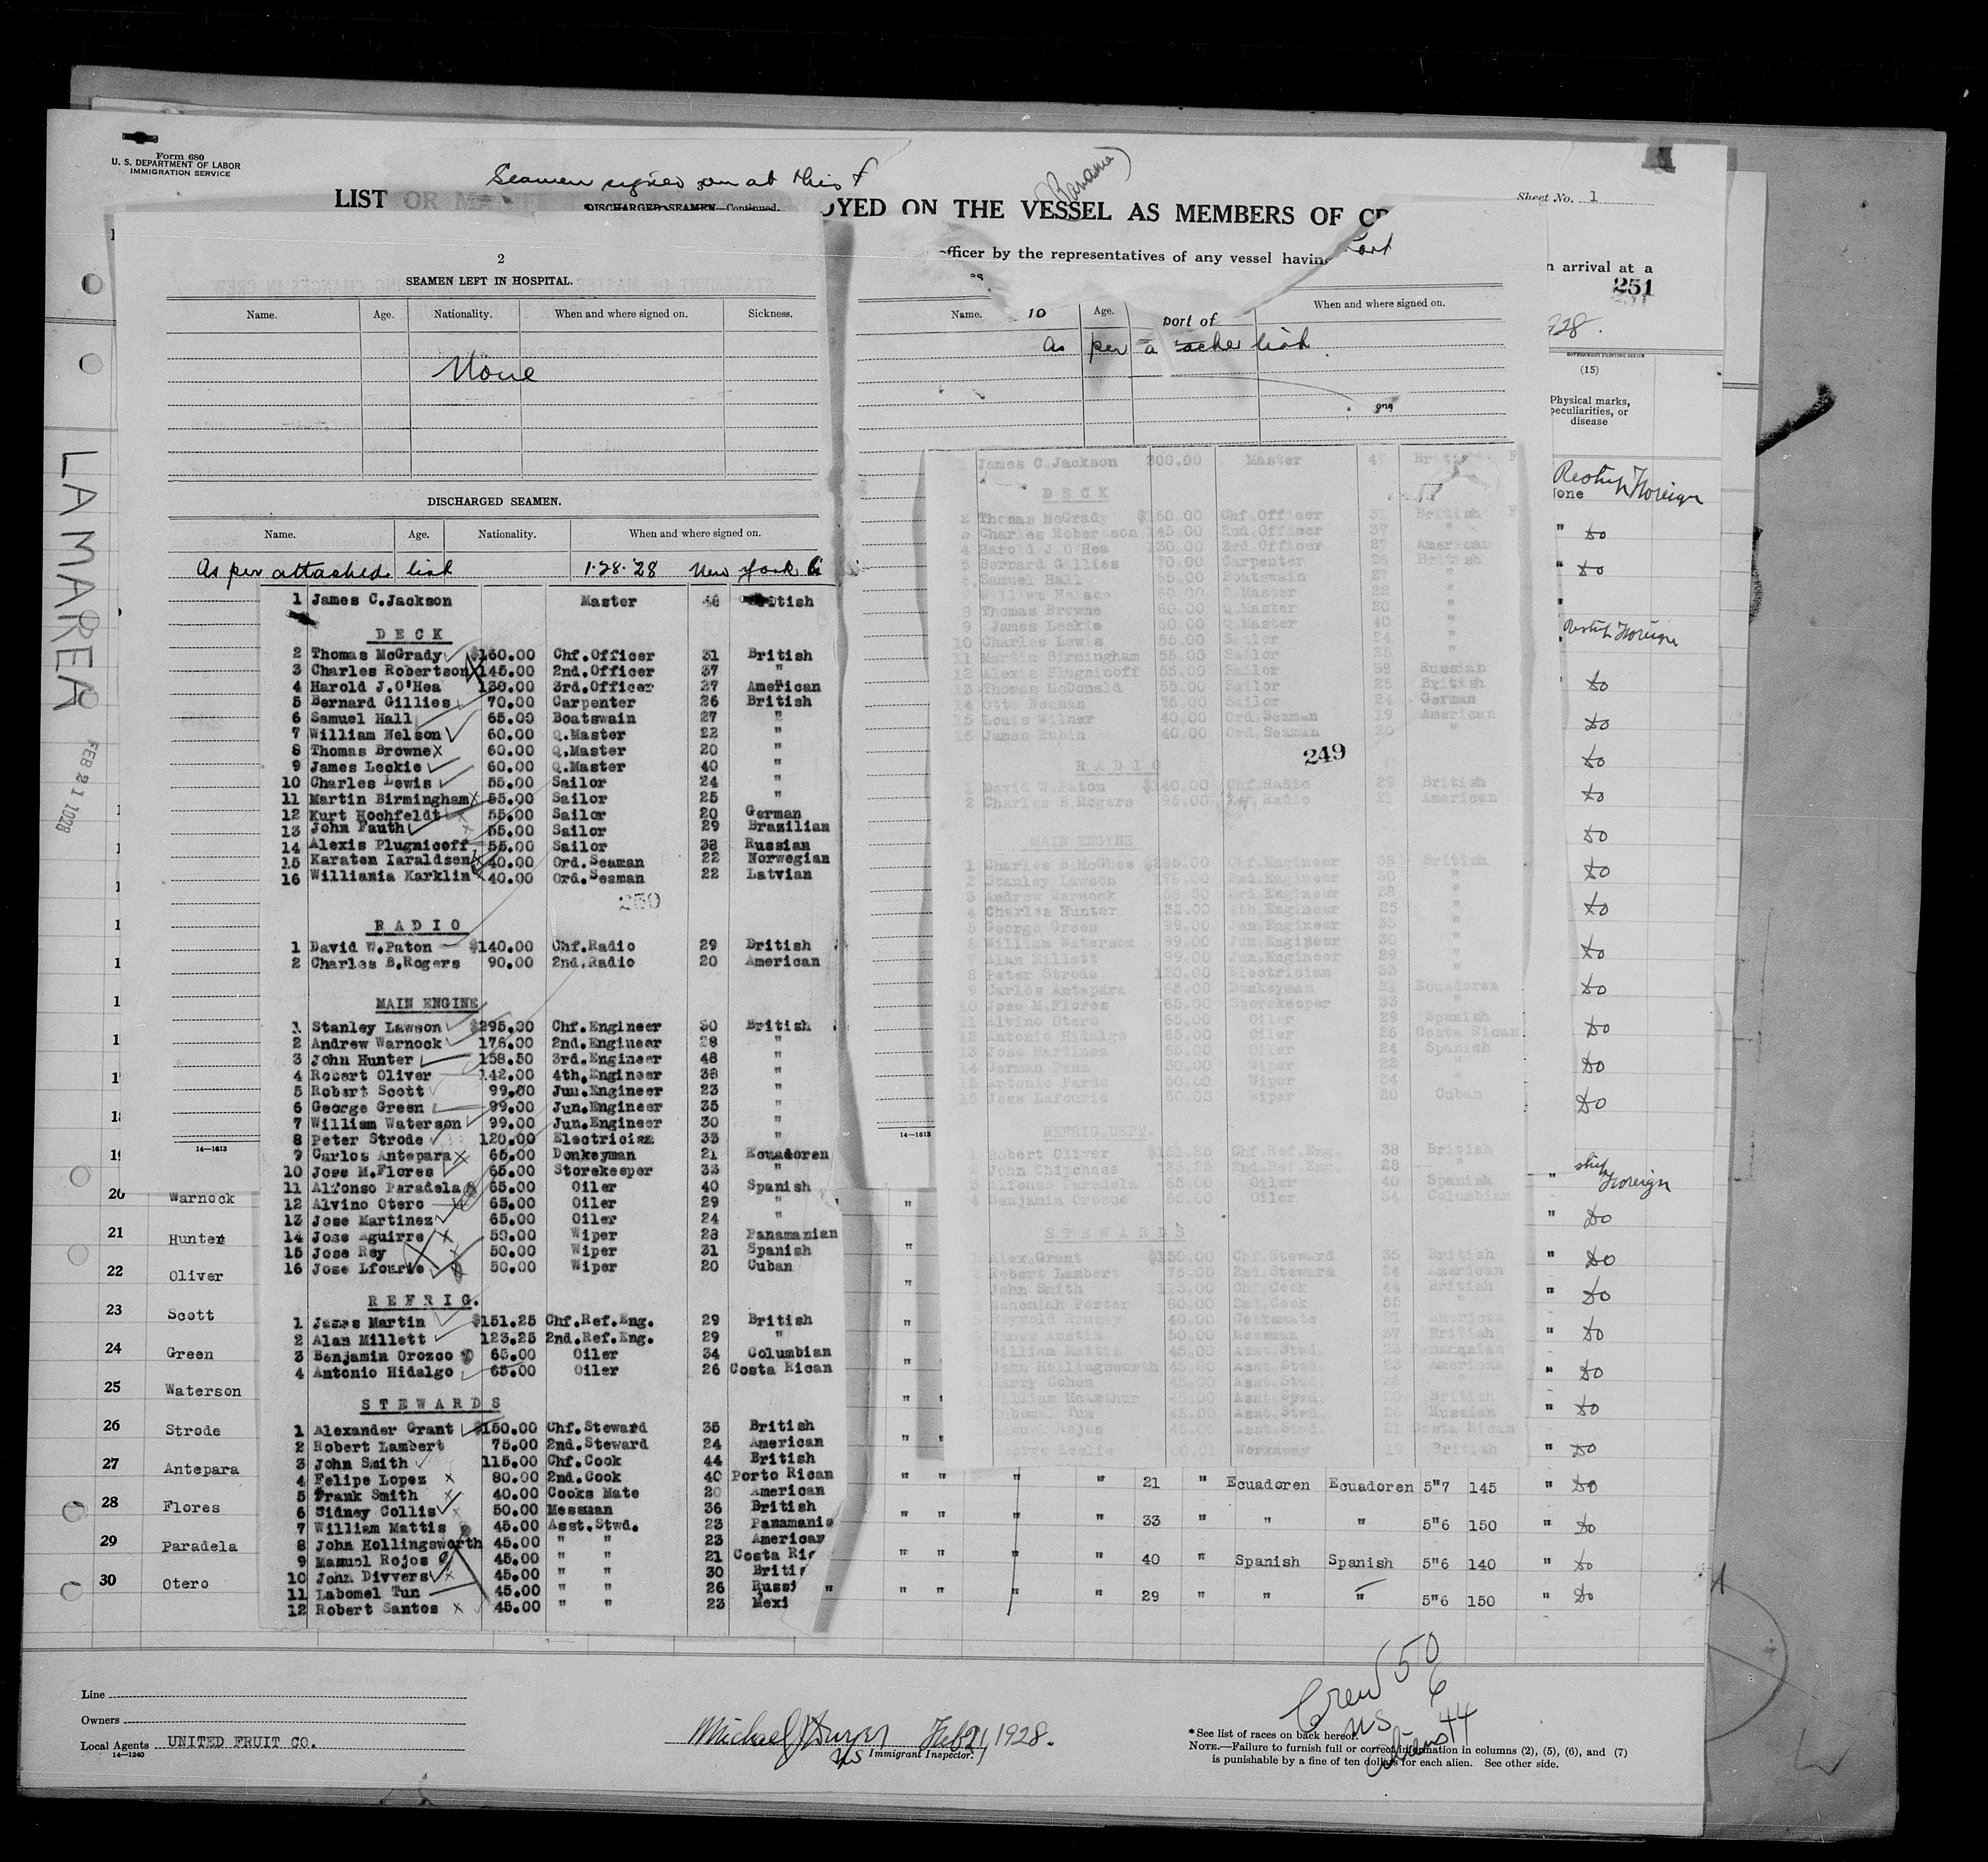 Form 680
U. S. DEPARTMENT OF LABOR
IMMIGRATION SERVICE
Seamen signed on at this
(Panama)
LIST OR
OYED ON THE VESSEL AS MEMBERS OF
DISCHARGED SEAMEN—Continued.
Sheet No. 1
officer by the representatives of any vessel having
n arrival at a
251
LAMAREA
FEB 21 1928
2
SEAMEN LEFT IN HOSPITAL.
Name. Age. Nationality. When and where signed on. Sickness.
None
DISCHARGED SEAMEN.
Name. Age. Nationality. When and where signed on.
As per attached list 1·28·'28 New York
1 James C.Jackson Master British
DECK
2 Thomas McGrady $160.00 Chf.Officer 31 British
3 Charles Robertson 145.00 2nd.Officer 37 "
4 Harold J.O'Hea 130.00 3rd.Officer 27 American
5 Bernard Gillies 70.00 Carpenter 26 British
6 Samuel Hall 65.00 Boatswain 27 "
7 William Nelson 60.00 Q.Master 22 "
8 Thomas Browne 60.00 Q.Master 20 "
9 James Leckie 60.00 Q.Master 40 "
10 Charles Lewis 55.00 Sailor 24 "
11 Martin Birmingham 55.00 Sailor 25 "
12 Kurt Hochfeldt 55.00 Sailor 20 German
13 John Fauth 55.00 Sailor 29 Brazilian
14 Alexis Plugnicoff 55.00 Sailor 38 Russian
15 Karaten Iaraldsen 40.00 Ord.Seaman 22 Norwegian
16 Williania Karklin 40.00 Ord.Seaman 22 Latvian
RADIO
1 David W.Paton $140.00 Chf.Radio 29 British
2 Charles B.Rogers 90.00 2nd.Radio 20 American
MAIN ENGINE
1 Stanley Lawson $295.00 Chf.Engineer 30 British
2 Andrew Warnock 176.00 2nd.Engineer 28 "
3 John Hunter 158.50 3rd.Engineer 48 "
4 Robert Oliver 142.00 4th.Engineer 38 "
5 Robert Scott 99.00 Jun.Engineer 23 "
6 George Green 99.00 Jun.Engineer 35 "
7 William Waterson 99.00 Jun.Engineer 30 "
8 Peter Strode 120.00 Electrician 33 "
9 Carlos Antepara 65.00 Donkeyman 21 Ecuadoren
10 Jose M.Flores 65.00 Storekeeper 33 "
11 Alfonso Paradela 65.00 Oiler 40 Spanish
12 Alvino Otero 65.00 Oiler 29 "
13 Jose Martinez 65.00 Oiler 24 "
14 Jose Aguirre 50.00 Wiper 28 Panamanian
15 Jose Rey 50.00 Wiper 31 Spanish
16 Jose Lfourie 50.00 Wiper 20 Cuban
REFRIG.
1 James Martin $151.25 Chf.Ref.Eng. 29 British
2 Alan Millett 123.25 2nd.Ref.Eng. 29 "
3 Benjamin Orozco 65.00 Oiler 34 Columbian
4 Antonio Hidalgo 65.00 Oiler 26 Costa Rican
STEWARDS
1 Alexander Grant $150.00 Chf.Steward 35 British
2 Robert Lambert 75.00 2nd.Steward 24 American
3 John Smith 115.00 Chf.Cook 44 British
4 Felipe Lopez 80.00 2nd.Cook 40 Porto Rican
5 Frank Smith 40.00 Cooks Mate 20 American
6 Sidney Collis 50.00 Messman 36 British
7 William Mattis 45.00 Asst.Stwd. 23 Panamania
8 John Hollingsworth 45.00 " " 23 American
9 Manuel Rojos 45.00 " " 21 Costa Ric
10 John Divvers 45.00 " " 30 Britis
11 Labomel Tun 45.00 " " 26 Russi
12 Robert Santos 45.00 " " 23 Mexi
Name. 10 Age. port of When and where signed on.
As per a list
James C.Jackson 300.00 Master 47 British
DECK
2 Thomas McGrady $160.00 Chf.Officer 31 British
3 Charles Robertson 145.00 2nd.Officer 37 "
4 Harold J.O'Hea 130.00 3rd.Officer 27 American
5 Bernard Gillies 70.00 Carpenter 26 British
Samuel Hall 65.00 Boatswain 27 "
William Nelson 60.00 Q.Master 22 "
8 Thomas Browne 60.00 Q.Master 20 "
9 James Leckie 60.00 Q.Master 40 "
10 Charles Lewis 55.00 Sailor 24 "
11 Martin Birmingham 55.00 Sailor 25 "
12 Alexis Plugnicoff 55.00 Sailor 38 Russian
13 Thomas McDonald 55.00 Sailor 25 British
14 Otto Neuman 55.00 Sailor 24 German
15 Louis Wilner 40.00 Ord.Seaman 19 American
16 James Rubin 40.00 Ord.Seaman 20 "
249
RADIO
1 David W.Paton $140.00 Chf.Radio 29 British
2 Charles B.Rogers Radio 21 American
MAIN ENGINE
1 Charles B.McGhee $295.00 Chf.Engineer British
2 Stanley Lawson 2nd.Engineer 30 "
3 Andrew Warnock 158.50 3rd.Engineer 28 "
4 Charles Hunter 4th.Engineer 25 "
5 George Green 99.00 Jun.Engineer 35 "
6 William Waterson 99.00 Jun.Engineer 30 "
7 Alan Millett 99.00 Jun.Engineer 29 "
8 Peter Strode 120.00 Electrician 33 "
9 Carlos Antepara 65.00 Donkeyman 21 Ecuadoren
10 Jose M.Flores 65.00 Storekeeper 33 "
11 Alvino Otero 65.00 Oiler 29 Spanish
12 Antonio Hidalgo 65.00 Oiler 26 Costa Rican
13 Jose Martinez 65.00 Oiler 24 Spanish
14 German Pena 50.00 Wiper 22 "
15 Antonio Pardo 50.00 Wiper 34 "
16 Jose Lafourie 50.00 Wiper 20 Cuban
REFRIG.DEPT.
1 Robert Oliver $151.25 Chf.Ref.Eng. 38 British
2 John Chipchase 123.25 2nd.Ref.Eng. 28 "
3 Alfonso Paradela 65.00 Oiler 40 Spanish
4 Benjamin Orozco 65.00 Oiler 34 Columbian
STEWARDS
1 Alex.Grant $150.00 Chf.Steward 35 British
Robert Lambert 75.00 2nd.Steward 24 American
John Smith 115.00 Chf.Cook 44 British
Nehomiah Porter 80.00 2nd.Cook 55 "
Reynold Ramsey 40.00 Cooksmate 21 American
James Austin 50.00 Messman 37 British
William Mattis 45.00 Asst.Stwd. 23 Panamanian
John Hollingsworth 45.00 Asst.Stwd. 23 American
Harry Cohen 45.00 Asst.Stwd.
William McArthur Asst.Stwd. British
Labomel Tun 45.00 Asst.Stwd. 26 Russian
Manuel Rojos 45.00 Asst.Stwd. 21 Costa Rican
George Leslie Workaway 19 British
14—1613
14—1613
(15)
Physical marks,
peculiarities, or
disease
Foreign
None
20 Warnock
21 Hunter
22 Oliver
23 Scott
24 Green
25 Waterson
26 Strode
27 Antepara " " " " 21 " Ecuadoren Ecuadoren 5"7 145 " do
28 Flores " " " " 33 " " " 5"6 150 " do
29 Paradela " " " " 40 " Spanish Spanish 5"6 140 " do
30 Otero " " " " 29 " " " 5"6 150 " do
Line
Owners
Local Agents UNITED FRUIT CO.
14—1240
Feb 21, 1928.
US Immigrant Inspector.
Crew 50
US 6
Aliens 44
*See list of races on back hereof.
NOTE.—Failure to furnish full or correct information in columns (2), (5), (6), and (7)
is punishable by a fine of ten dollars for each alien. See other side.